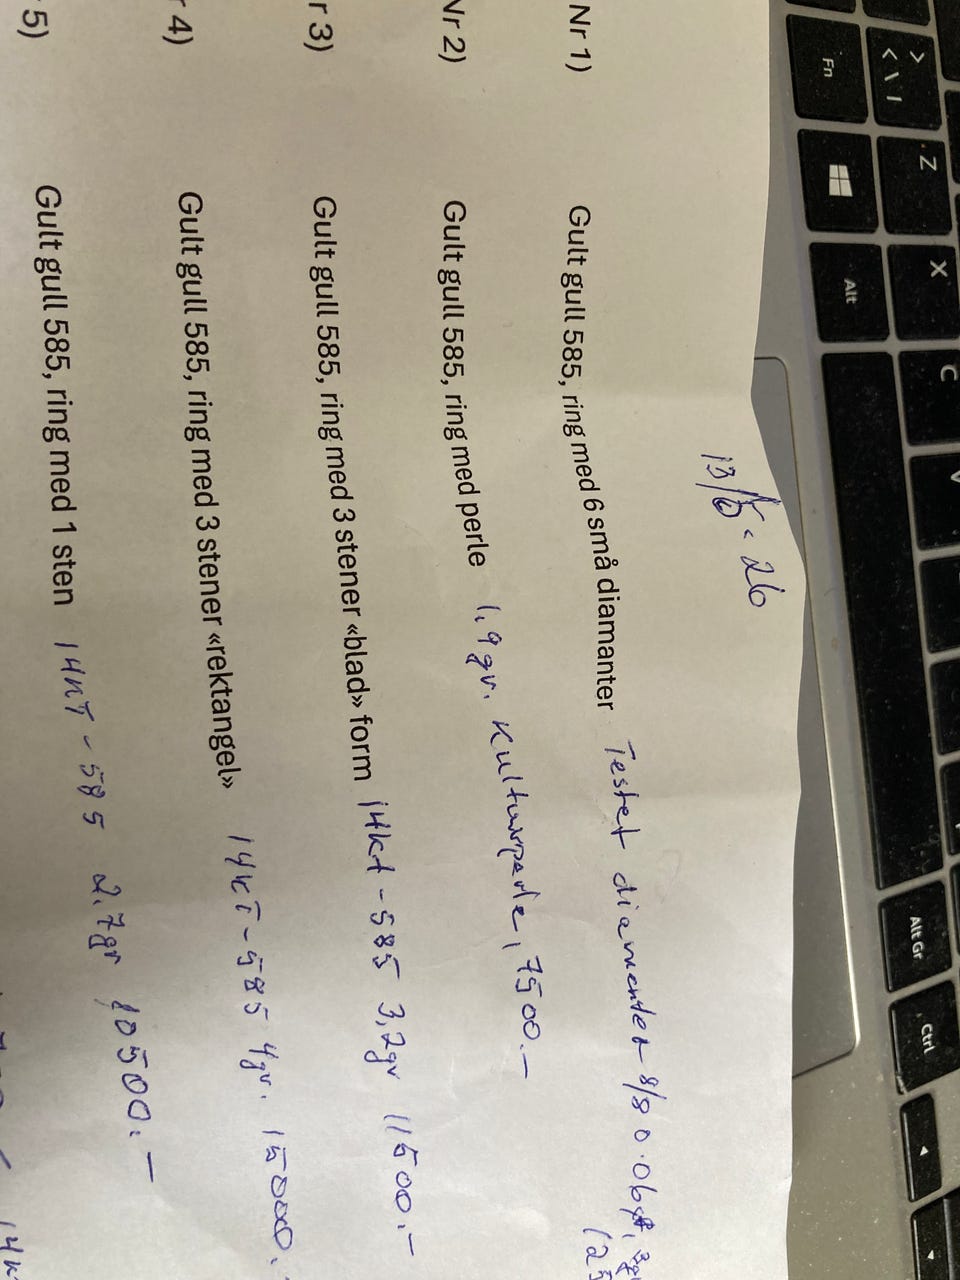 13/5-26
Nr 1) Gult gull 585, ring med 6 små diamanter Testet diamanter 8/8 0.06
Nr 2) Gult gull 585, ring med perle 1,9 gr. Kulturperle, 7500.-
r 3) Gult gull 585, ring med 3 stener «blad» form 14kt - 585 3,2gr 11500.-
r 4) Gult gull 585, ring med 3 stener «rektangel» 14KT - 585 4gr. 15000.
5) Gult gull 585, ring med 1 sten 14KT - 585 2.7gr 10500.-
Fn
Alt
Alt Gr
Ctrl
> < \ |
Z
X
C